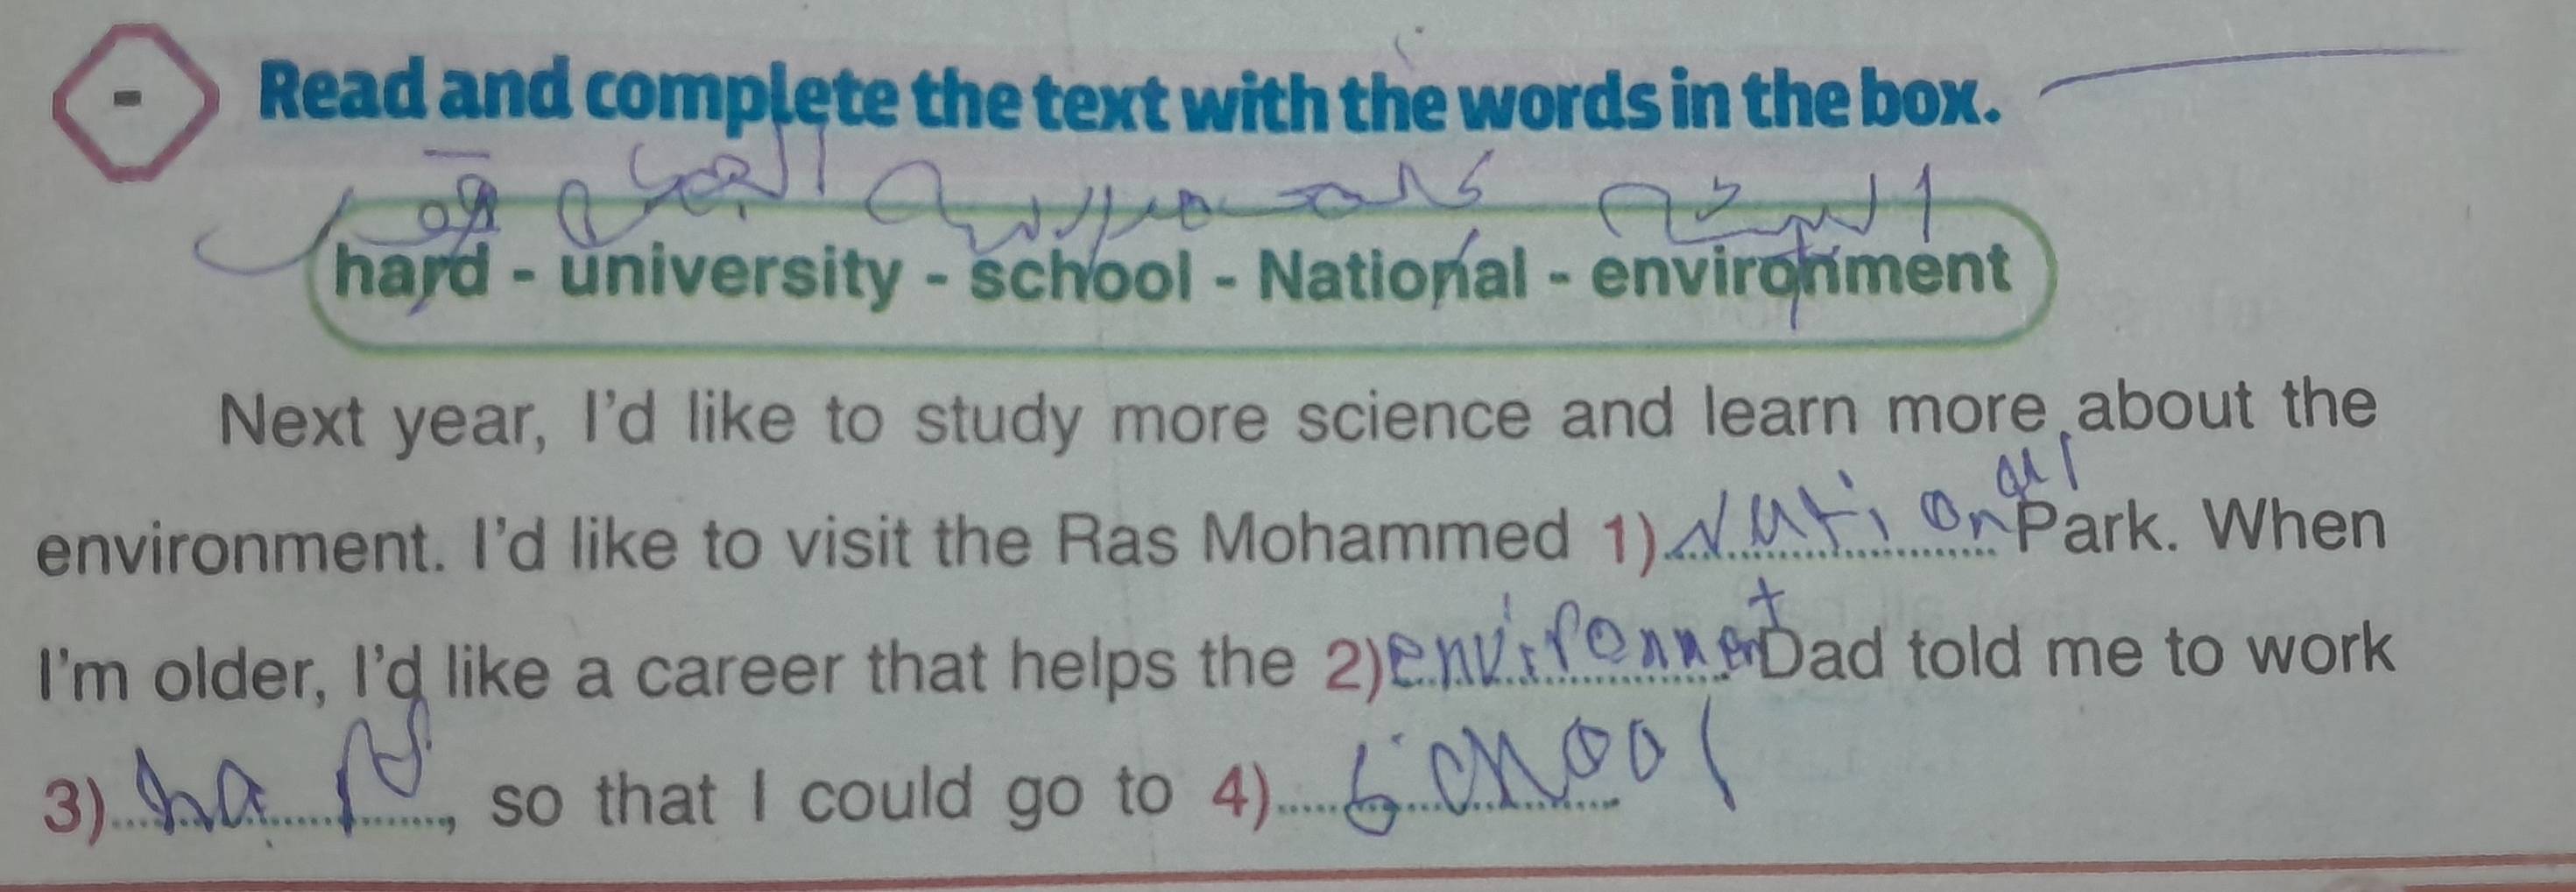 -
Read and complete the text with the words in the box.
hard - university - school - National - environment
Next year, I'd like to study more science and learn more about the
environment. I'd like to visit the Ras Mohammed 1) National Park. When
I'm older, I'd like a career that helps the 2) environnent Dad told me to work
3) hard, so that I could go to 4) school